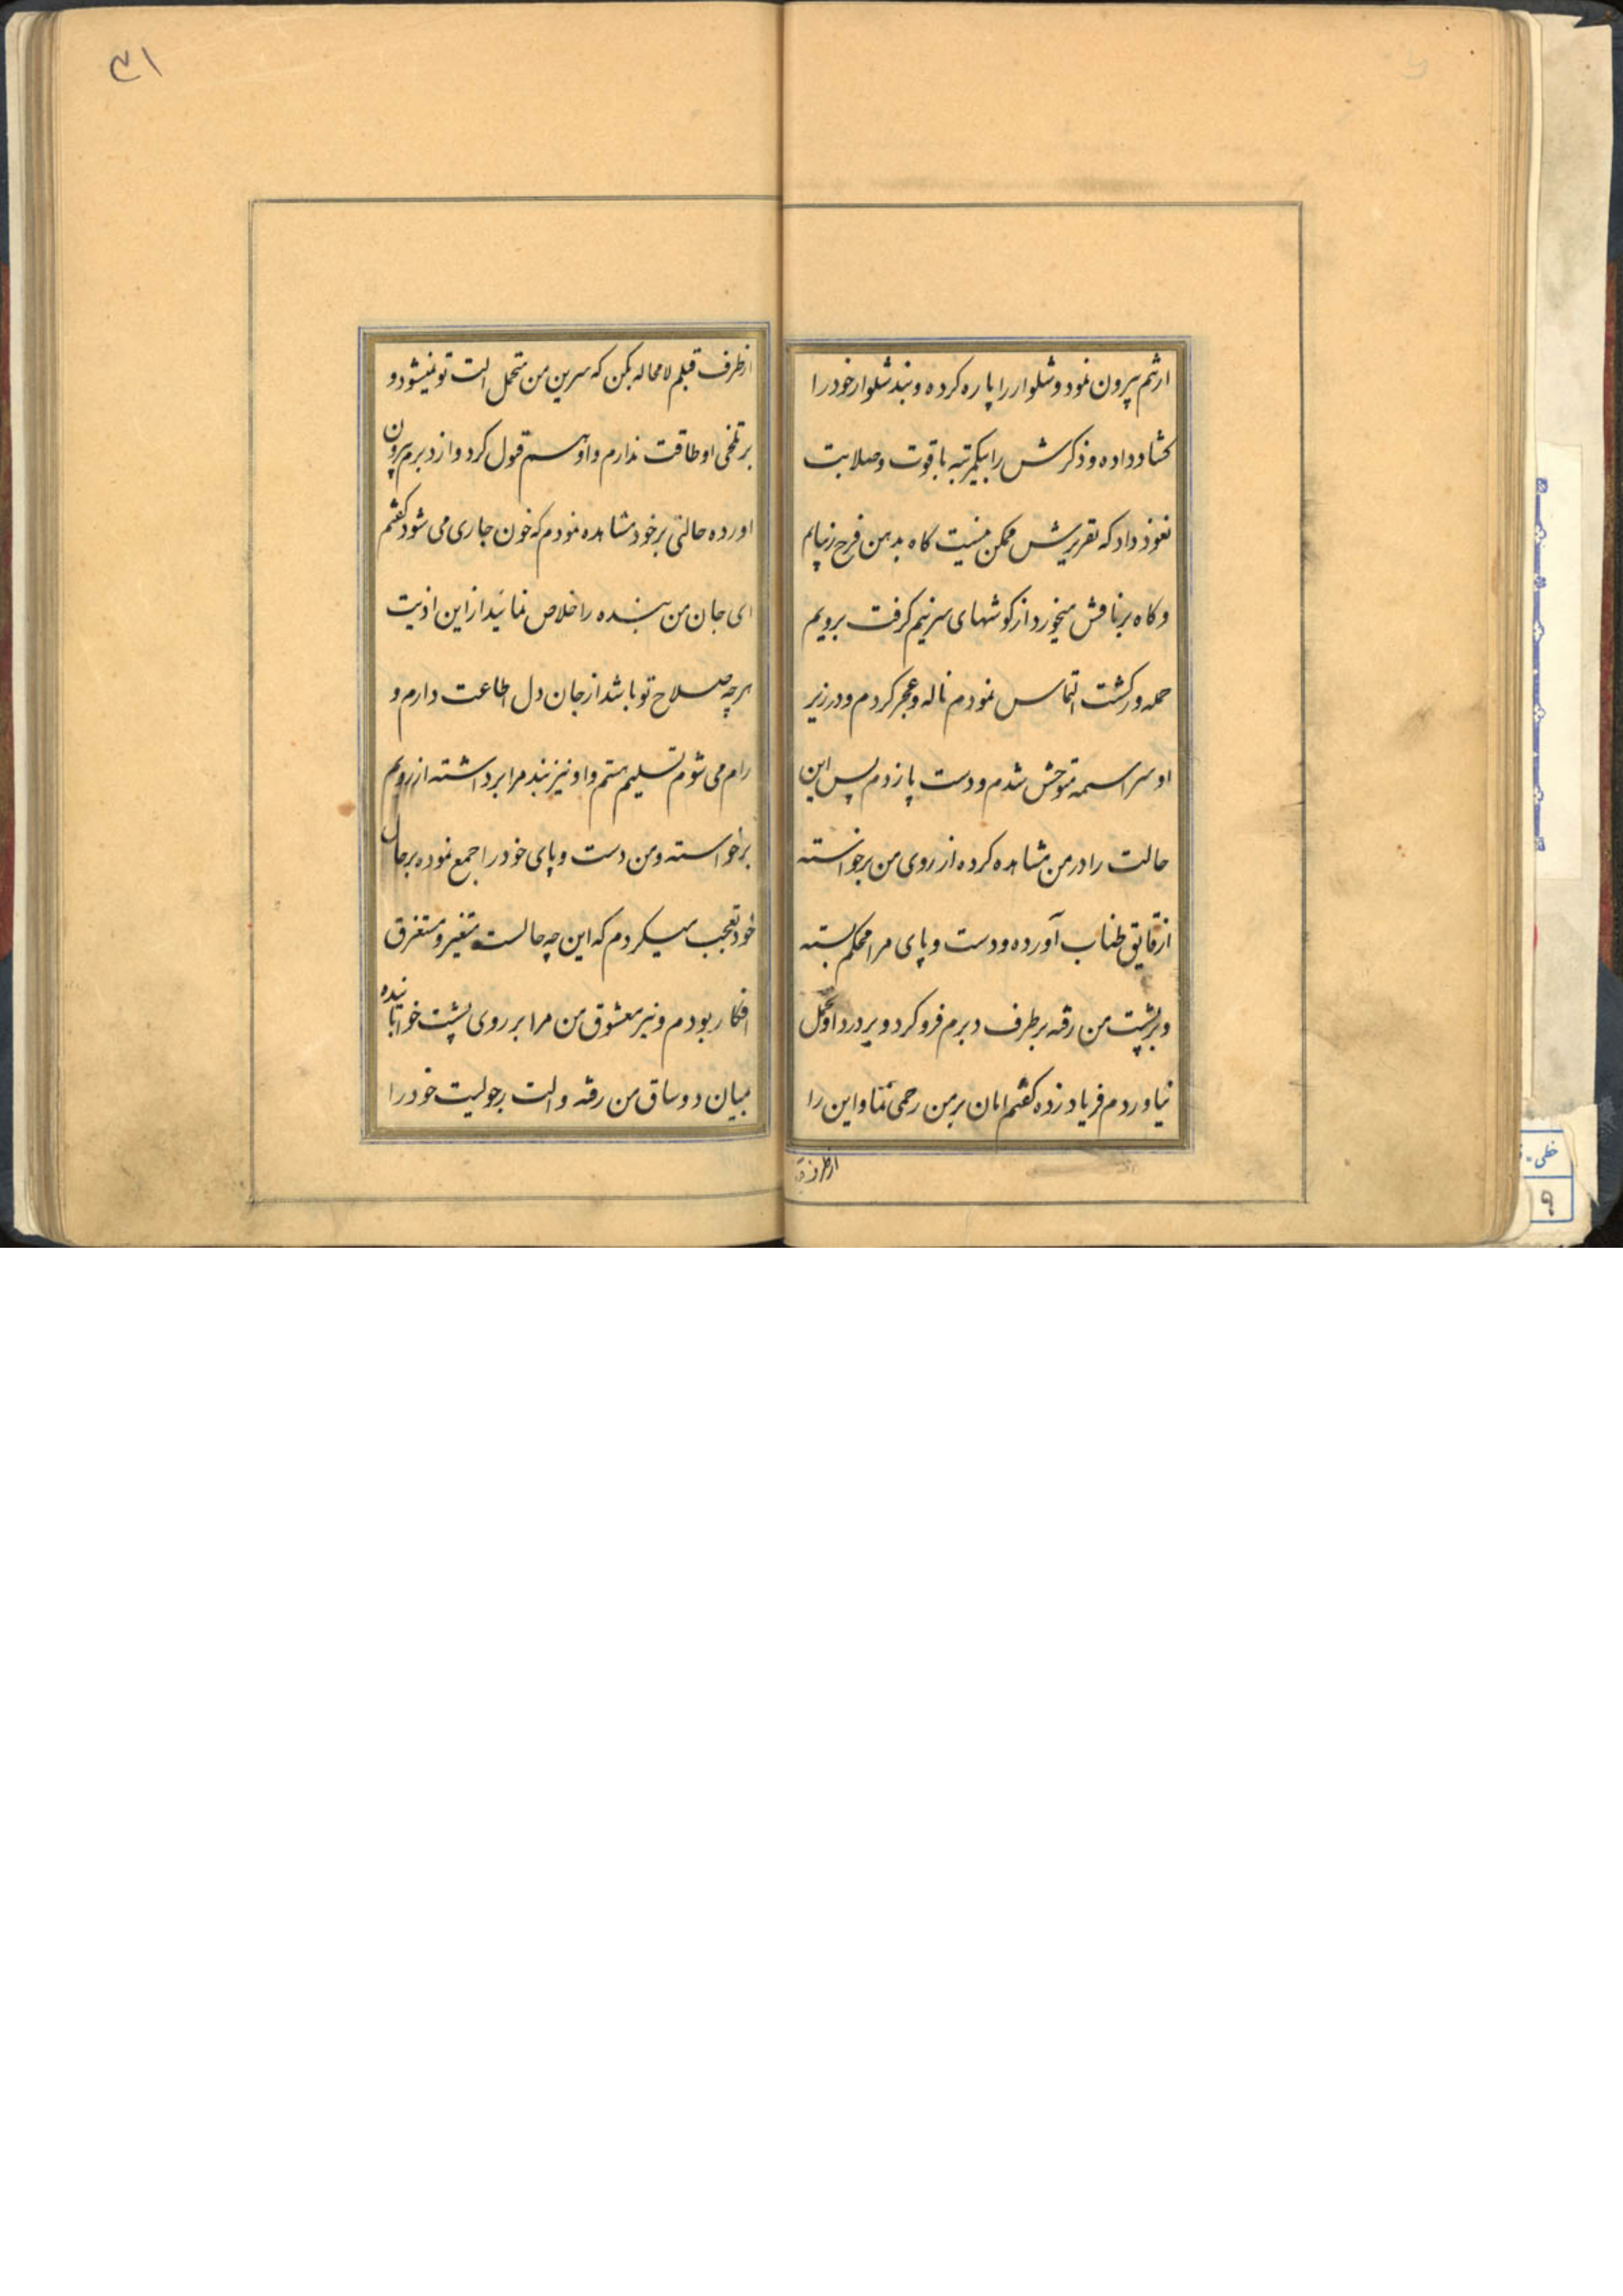 ۳۱
ازتم بیرون نمود و شلوار را پاره کرده و بند شلوار خود را
کشاد داده و ذکرش را بیکمرتبه با قوت و صلابت
نفوذ داد که تقریرش ممکن نیست کاه بدهن فرج زیبایم
و کاه بر نافش میخورد از کوشهای سرینیم کرفت برویم
حمله ور کشت التماس نمودم ناله و عجر کردم و در زیر
او سراسمه متوحش شدم و دست پا زدم پس این
حالت را در من مشاهده کرده از روی من برخواسته
از قایق طناب آورده و دست و پای مرا محکم بسته
و بر پشت من رفته بر طرف دبرم فرو کرد و بر درد او تحمل
نیاوردم فریاد زده کفتم امان بر من رحمی نما و این را
از طرف
از طرف قبلم لامحاله بکن که سرین من متحمل الت تو نمیشود و
بر تلخی او طاقت ندارم و او هسم قول کرد و از دبرم بیرون
اورده حالتی بر خود مشاهده نمودم که خون جاری می شود کفتم
ای جان من بنده را خلاص نمائید از این اذیت
هرچه صلاح تو باشد از جان دل اطاعت دارم و
رام می شوم تسلیم هستم و او نیز بند مرا برداشته از رویم
برخواسته و من دست و پای خود را جمع نموده بر حال
خود تعجب میکردم که این چه حالست متغیر و مستغرق
افکار بودم و نیر معشوق من مرا بر روی پشت خوابانیده
میان دو ساق من رفته و الت رجولیت خود را
خطی
۹